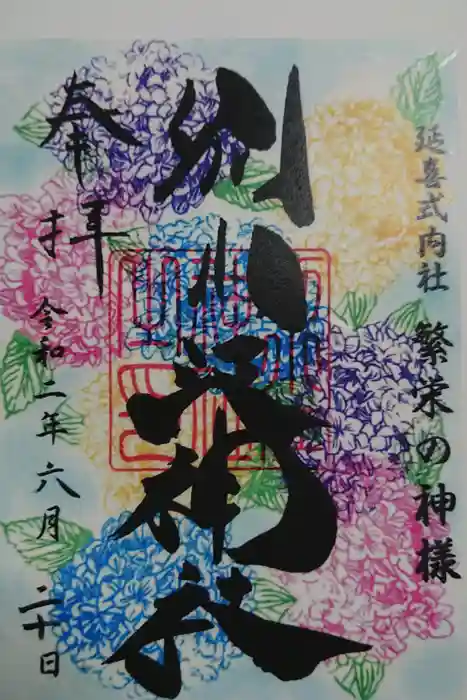 延喜式内社 繁栄の神様
別小江神社
奉拝
令和二年六月二十日